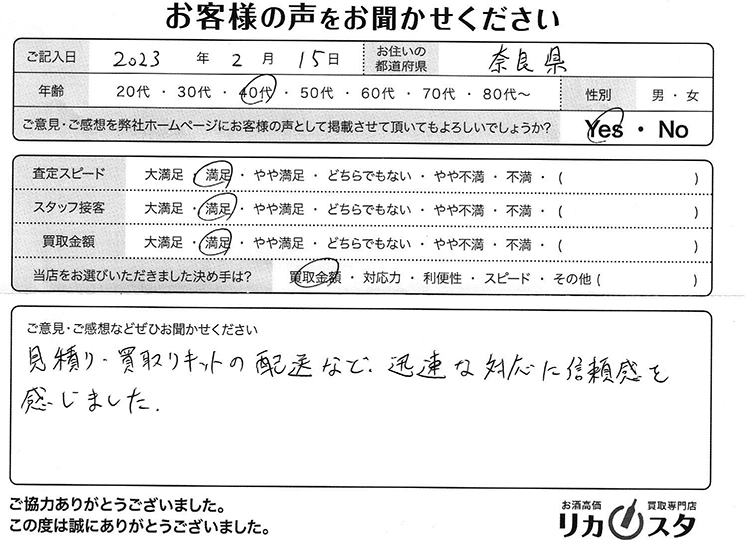 お客様の声をお聞かせください
ご記入日 2023 年 2 月 15日 お住いの都道府県 奈良県
年齢 20代 ・ 30代 ・ 40代 ・ 50代 ・ 60代 ・ 70代 ・ 80代〜 性別 男 ・ 女
ご意見・ご感想を弊社ホームページにお客様の声として掲載させて頂いてもよろしいでしょうか? Yes ・ No
査定スピード 大満足 ・ 満足 ・ やや満足 ・ どちらでもない ・ やや不満 ・ 不満 ・ ( )
スタッフ接客 大満足 ・ 満足 ・ やや満足 ・ どちらでもない ・ やや不満 ・ 不満 ・ ( )
買取金額 大満足 ・ 満足 ・ やや満足 ・ どちらでもない ・ やや不満 ・ 不満 ・ ( )
当店をお選びいただきました決め手は? 買取金額 ・ 対応力 ・ 利便性 ・ スピード ・ その他 ( )
ご意見・ご感想などぜひお聞かせください
見積り・買取りキットの配送など、迅速な対応に信頼感を
感じました.
ご協力ありがとうございました。
この度は誠にありがとうございました。
お酒高価 買取専門店
リカスタ